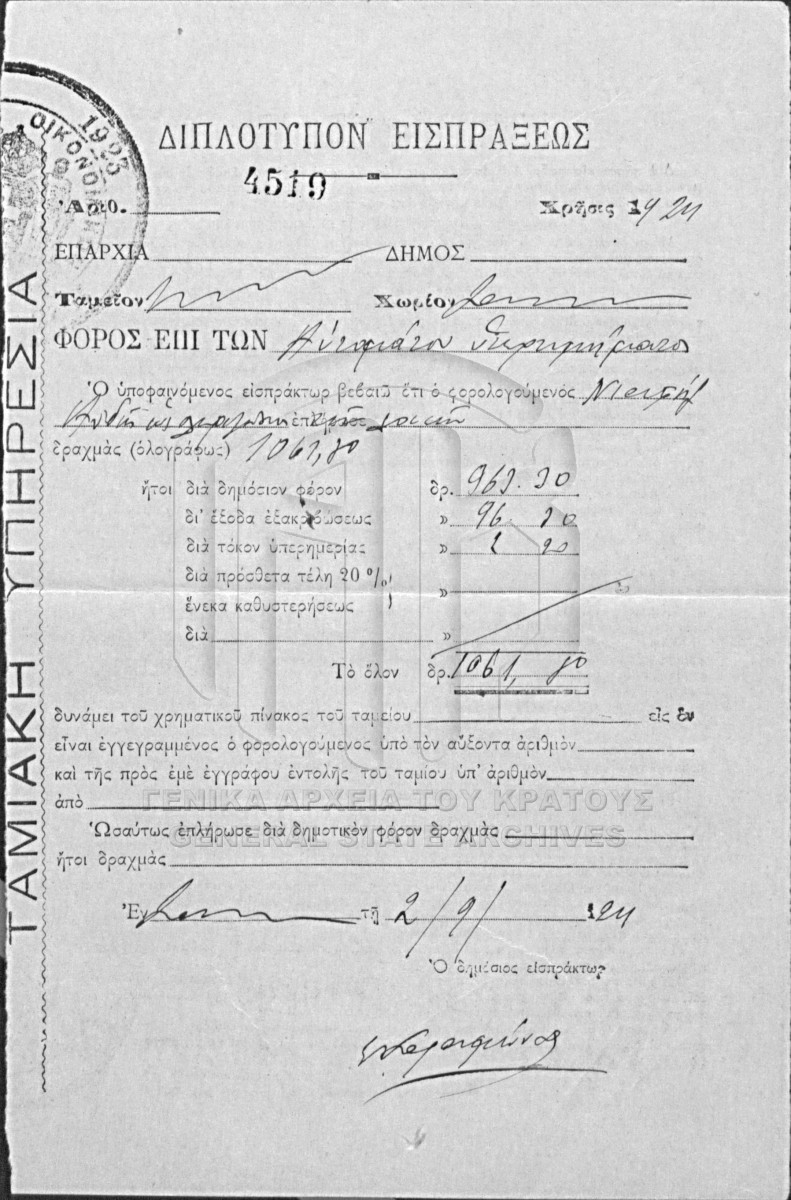 1925
ΟΙΚΟΝΟΜ
ΔΙΠΛΟΤΥΠΟΝ ΕΙΣΠΡΑΞΕΩΣ
4519
Ἀριθ. Χρῆσις 1924
ΕΠΑΡΧΙΑ ΔΗΜΟΣ
Ταμεῖον Χωρίον
ΦΟΡΟΣ ΕΠΙ ΤΩΝ Αὐτομάτου
Ὁ ὑποφαινόμενος εἰσπράκτωρ βεβαιῶ ὅτι ὁ φορολογούμενος
δραχμὰς (ὁλογράφως) 1061,80
ἤτοι διὰ δημόσιον φόρον δρ. 963.20
δι' ἔξοδα ἐξακριβώσεως » 96.20
διὰ τόκον ὑπερημερίας » 2 20
διὰ πρόσθετα τέλη 20 %)
ἕνεκα καθυστερήσεως ) »
διὰ »
Τὸ ὅλον δρ. 1061,80
δυνάμει τοῦ χρηματικοῦ πίνακος τοῦ ταμείου εἰς ὃν
εἶναι ἐγγεγραμμένος ὁ φορολογούμενος ὑπὸ τὸν αὔξοντα ἀριθμὸν
καὶ τῆς πρὸς ἐμὲ ἐγγράφου ἐντολῆς τοῦ ταμίου ὑπ' ἀριθμὸν
ἀπὸ
ΓΕΝΙΚΑ ΑΡΧΕΙΑ ΤΟΥ ΚΡΑΤΟΥΣ
Ὡσαύτως ἐπλήρωσε διὰ δημοτικὸν φόρον δραχμὰς
GENERAL STATE ARCHIVES
ἤτοι δραχμὰς
Ἐν τῇ 2/9/ 1924
Ὁ δημόσιος εἰσπράκτωρ
ΤΑΜΙΑΚΗ ΥΠΗΡΕΣΙΑ